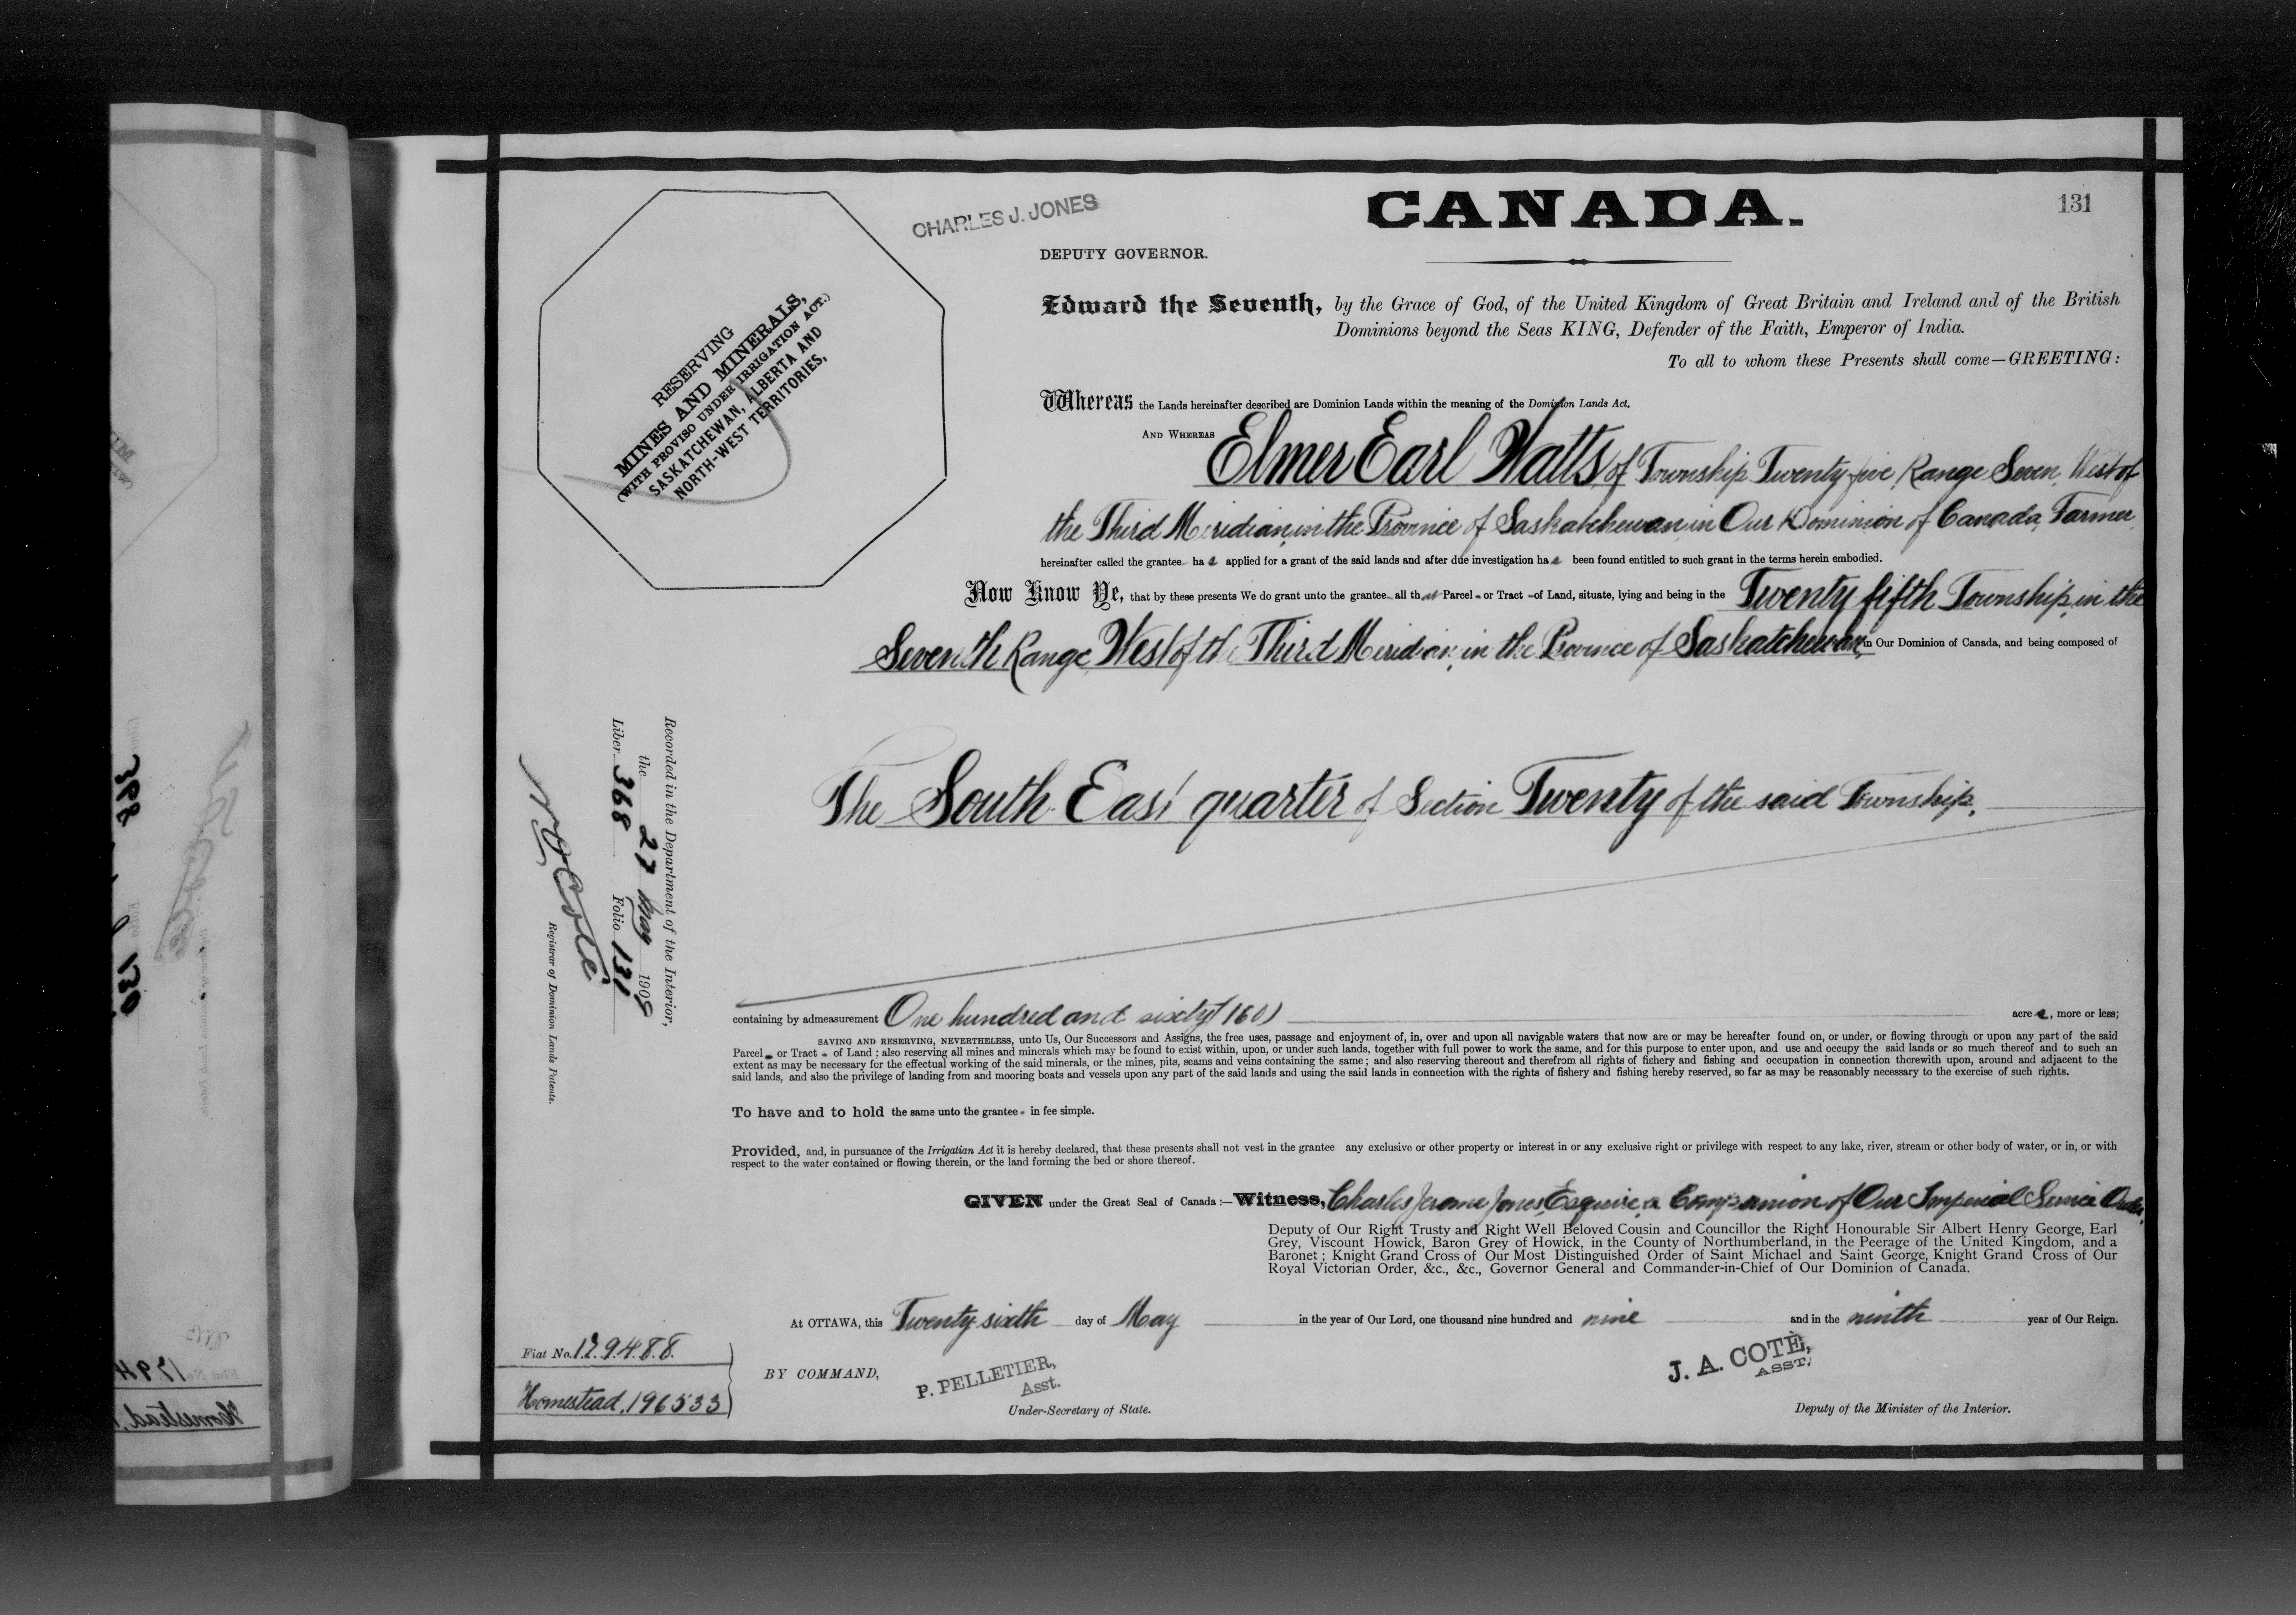 CANADA.
131
CHARLES J. JONES
DEPUTY GOVERNOR.
RESERVING
MINES AND MINERALS,
(WITH PROVISO UNDER IRRIGATION ACT.)
SASKATCHEWAN, ALBERTA AND
NORTH-WEST TERRITORIES,
Edward the Seventh, by the Grace of God, of the United Kingdom of Great Britain and Ireland and of the British
Dominions beyond the Seas KING, Defender of the Faith, Emperor of India.
To all to whom these Presents shall come—GREETING:
Whereas the Lands hereinafter described are Dominion Lands within the meaning of the Dominion Lands Act.
AND WHEREAS Elmer Earl Watts of Township Twenty-five Range Seven, West of
the Third Meridian, in the Province of Saskatchewan, in Our Dominion of Canada, Farmer
hereinafter called the grantee ha s applied for a grant of the said lands and after due investigation ha s been found entitled to such grant in the terms herein embodied.
Now Know Ye, that by these presents We do grant unto the grantee all that Parcel or Tract of Land, situate, lying and being in the Twenty fifth Township, in the
Seventh Range, West of the Third Meridian, in the Province of Saskatchewan, in Our Dominion of Canada, and being composed of
The South East quarter of Section Twenty of the said Township.
containing by admeasurement One hundred and sixty (160) acres, more or less;
SAVING AND RESERVING, NEVERTHELESS, unto Us, Our Successors and Assigns, the free uses, passage and enjoyment of, in, over and upon all navigable waters that now are or may be hereafter found on, or under, or flowing through or upon any part of the said
Parcel or Tract of Land; also reserving all mines and minerals which may be found to exist within, upon, or under such lands, together with full power to work the same, and for this purpose to enter upon, and use and occupy the said lands or so much thereof and to such an
extent as may be necessary for the effectual working of the said minerals, or the mines, pits, seams and veins containing the same; and also reserving thereout and therefrom all rights of fishery and fishing and occupation in connection therewith upon, around and adjacent to the
said lands, and also the privilege of landing from and mooring boats and vessels upon any part of the said lands and using the said lands in connection with the rights of fishery and fishing hereby reserved, so far as may be reasonably necessary to the exercise of such rights.
To have and to hold the same unto the grantee in fee simple.
Provided, and, in pursuance of the Irrigation Act it is hereby declared, that these presents shall not vest in the grantee any exclusive or other property or interest in or any exclusive right or privilege with respect to any lake, river, stream or other body of water, or in, or with
respect to the water contained or flowing therein, or the land forming the bed or shore thereof.
GIVEN under the Great Seal of Canada:—Witness, Charles Jerome Jones, Esquire, a Companion of Our Imperial Service Order,
Deputy of Our Right Trusty and Right Well Beloved Cousin and Councillor the Right Honourable Sir Albert Henry George, Earl
Grey, Viscount Howick, Baron Grey of Howick, in the County of Northumberland, in the Peerage of the United Kingdom, and a
Baronet; Knight Grand Cross of Our Most Distinguished Order of Saint Michael and Saint George, Knight Grand Cross of Our
Royal Victorian Order, &c., &c., Governor General and Commander-in-Chief of Our Dominion of Canada.
At OTTAWA, this Twenty-sixth day of May in the year of Our Lord, one thousand nine hundred and nine and in the ninth year of Our Reign.
BY COMMAND,
P. PELLETIER,
Asst.
Under-Secretary of State.
J. A. COTÈ,
ASST.
Deputy of the Minister of the Interior.
Fiat No. 129488
Homestead, 196533
Recorded in the Department of the Interior,
the 27 May 1909
Liber 368 Folio 131
N O Coté
Registrar of Dominion Lands Patents.